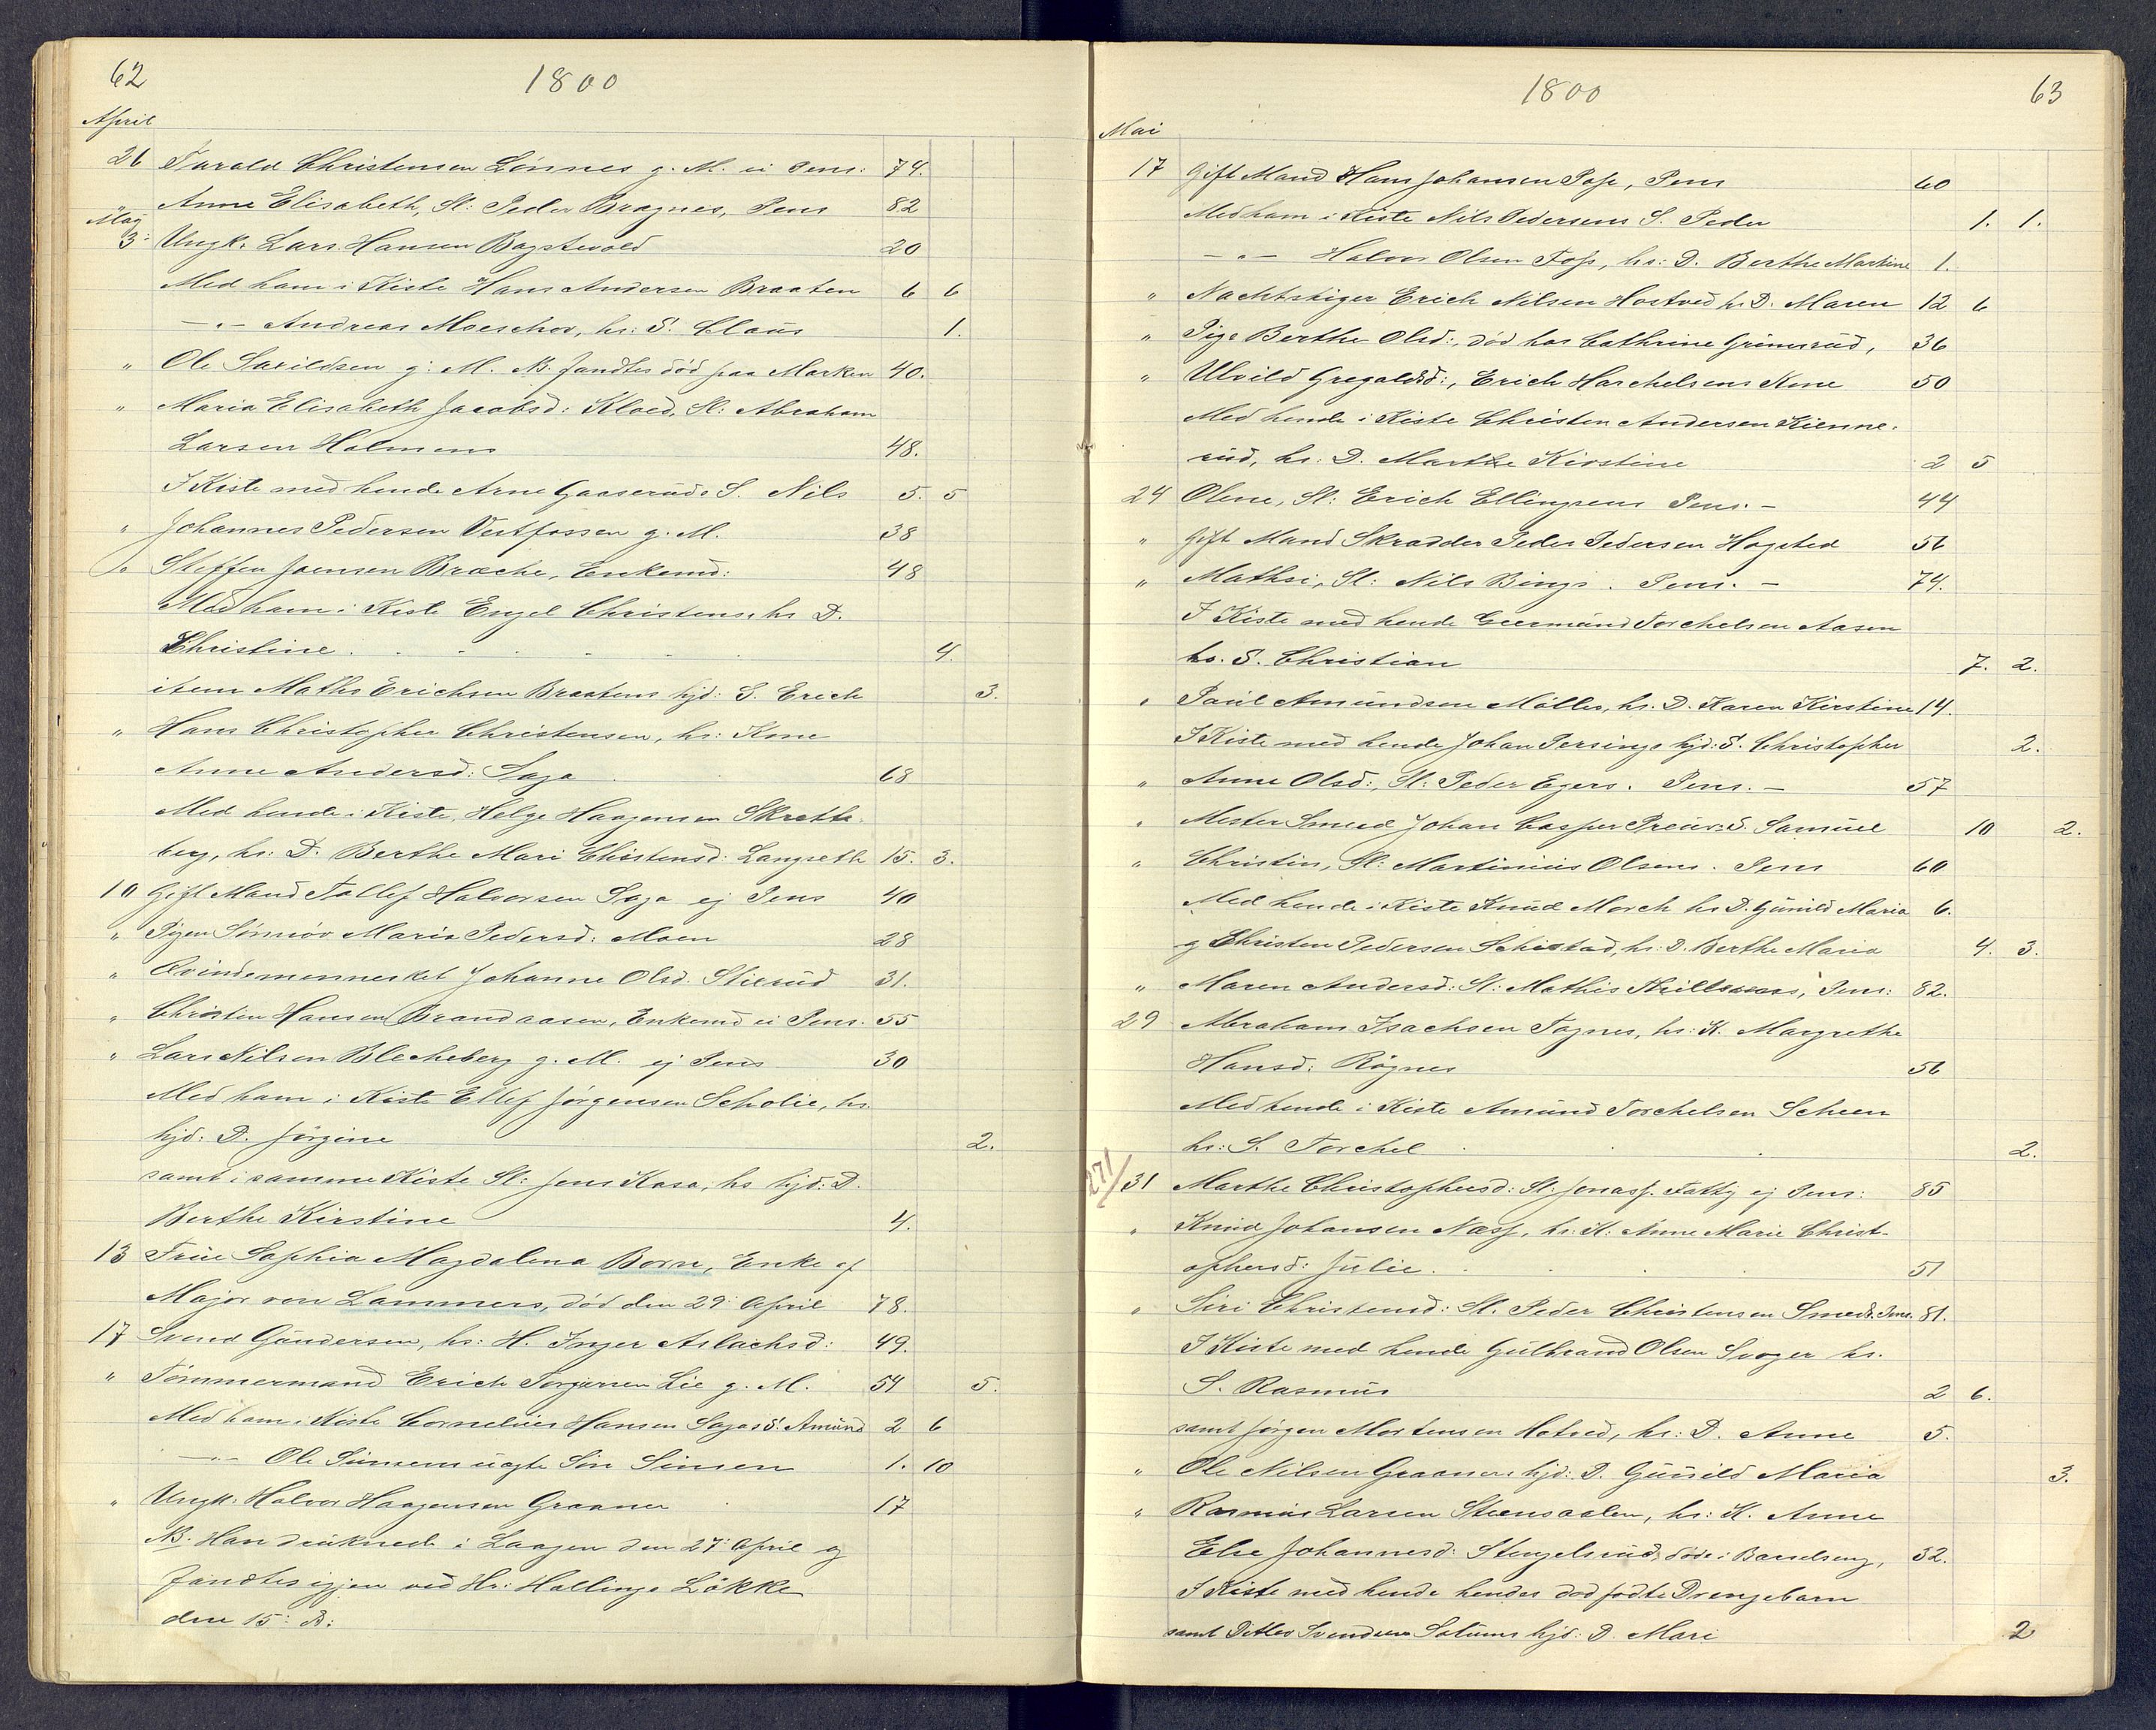 62
1800
April
26 Tarald Christensen Lönnes g. M. ei Pens: 74.
" Anne Elisabeth, Sl: Peder Bragnes, Pens 82
May
3: Ungk. Lars Hansen Bagstevold 20
Med ham i Kiste Hans Andersen Braaten 6 6
—"— Andreas Moeschov, hs: S. Claus 1.
" Ole Saxildsen g: M. NB. fandtes död paa Marken 40.
" Maria Elisabeth Jacobsd: Kloed, Sl: Abraham
Larsen Holmens 48.
I Kiste med hende Arne Gaaseruds S. Nils 5. 5
" Johannes Pedersen Vestfossen g. M. 38
" Steffen Joensen Bræche, Enkemd: 48
Med ham i Kiste Engel Christens, hs D.
Christine 4.
item Maths Erichsen Braatens hjd: S. Erich 3.
" Hans Christopher Christensen, hs: Kone
Anne Andersd: Saga 68
Med hende i Kiste, Helge Haagensen Skrette-
berg, hs: D. Berthe Mari Christensd: Langseth 15. 3.
10 Gift Mand Tollef Halvorsen Saga ej Pens 40
" Pigen Sönnöv Maria Pedersd: Moen 28
" Qvindemennesket Johanne Olsd. Stilerud 31.
" Christen Hansen Brandaasen, Enkemd ei Pens. 55
" Lars Nilsen Blecheberg g. M. ej Pens 30
Med ham i Kiste Ellef Jörgensen Scholie, hs.
hjd: D. Jörgine 2.
samt i samme Kiste Sl: Jens Kasa, hs hjd: D.
Berthe Kirstine 4.
13 Frue Sophia Magdalena Born, Enke af
Major von Lammers, död den 29: April 78.
17 Svend Gundersen, hs: H. Inger Aslachsd: 49.
" Tömmermand Erich Torgersen Lie g. M. 54 5.
Med ham i Kiste Cornelius Hansen Sagas S. Amund 2 6
—"— Ole Simens uægte Sön Simen 1. 10
" Ungk. Halvor Haagensen Graaner 17
NB. Han druknede i Laagen den 27: April og
fandtes igjen ved Hr: Hallings Lökke
den 15: D:
1800
63
Mai
17 Gift Mand Hans Johansen Pose, Pens 60
Med ham i Kiste Nils Pedersens S. Peder 1. 1.
—"— Halvor Olsen Foss, hs: D. Berthe Martine 1.
" Nachtstiger Erich Nilsen Hostved hs D. Maren 12 6
" Pige Berthe Olsd:, död hos Cathrine Grimsrud, 36
" Ulvild Gregaldsd:, Erich Harchelsens Kone 50
Med hende i Kiste Christen Andersen Kienne-
rud, hs: D. Marthe Kirstine 2 5
24 Olene, Sl: Erich Ellingsens Pens.— 44
" Gift Mand Skrædder Peder Pedersen Hogsted 56
" Mathsi, Sl: Nils Bings. Pens.— 74.
I Kiste med hende Germund Torchelsen Aasen
hs. S. Christian 7. 2.
" Paul Amundsen Möller, hs. D. Karen Kirstine 14.
I Kiste med hende Johan Persings hjd: S. Christopher 2.
" Anne Olsd:, Sl: Peder Egers. Pens.— 57
" Mester Smed Johan Casper Preus. S. Samuel 10 2.
" Christin, Sl: Martinius Olsens. Pens 60
Med hende i Kiste Knud Morch hs D. Gunild Maria 6.
g Christen Pedersen Schistad, hs: D. Berthe Maria 4. 3.
" Maren Andersd: Sl: Mathis Pens: 82.
29 Abraham Isachsen Tagnes, hs: K. Margrethe
Hansd: Rögnes 56
Med hende i Kiste Amund Torchelsen Scheen
hs: S. Torchel 2.
271/
31 Marthe Christophersd: Sl: Jonass. Fattig ej Pens: 85
" Knud Johansen Næss, hs: K: Anne Marie Christ-
ophersd: Julie 51
" Siri Christensd: Sl. Peder Christensen Smeds. Pens. 81.
I Kiste med hende Gulbrand Olsen Svager hs.
S. Rasmus 2 6.
samt Jörgen Mortensen Hotved, hs: D. Anne 5.
" Ole Nilsen Graaners hjd: D. Gunild Maria 3.
" Rasmus Larsen Steensaalen, hs: K. Anne
Else Johannesd: Stengelsrud, döde i Barselseng, 32.
I Kiste med hende hendes död födte Drengebarn
samt Ditlev Svendsen Solums hjd: D. Mari 2